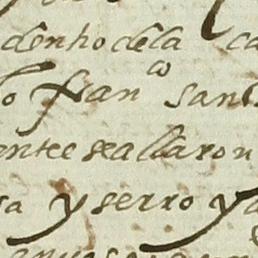 dentro de la ca
lo fran^co sant
ente se allaron
sa y serro y a